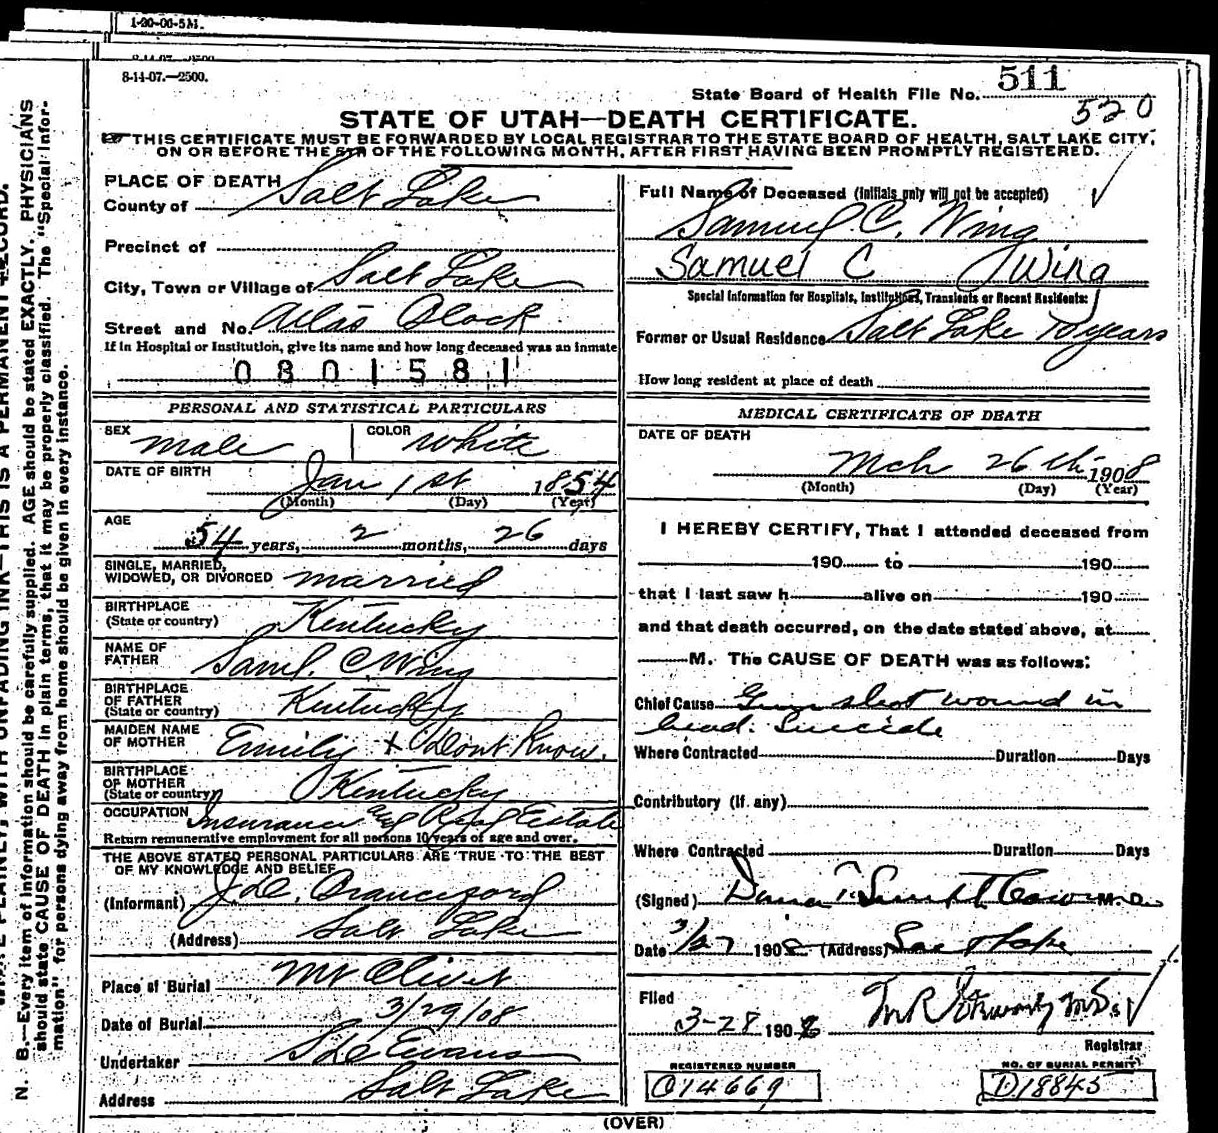 1-20-06-5M.
8-14-07.—2500.
State Board of Health File No. 511
520
STATE OF UTAH—DEATH CERTIFICATE.
THIS CERTIFICATE MUST BE FORWARDED BY LOCAL REGISTRAR TO THE STATE BOARD OF HEALTH, SALT LAKE CITY,
ON OR BEFORE THE 5TH OF THE FOLLOWING MONTH, AFTER FIRST HAVING BEEN PROMPTLY REGISTERED.
PLACE OF DEATH
County of Salt Lake
Precinct of
City, Town or Village of Salt Lake
Street and No. Atlas Block
If in Hospital or Institution, give its name and how long deceased was an inmate
0801581
PERSONAL AND STATISTICAL PARTICULARS
SEX male COLOR white
DATE OF BIRTH Jan 1st 1854
(Month) (Day) (Year)
AGE
54 years, 2 months, 26 days
SINGLE, MARRIED,
WIDOWED, OR DIVORCED married
BIRTHPLACE
(State or country) Kentucky
NAME OF
FATHER Saml. C. Wing
BIRTHPLACE
OF FATHER
(State or country) Kentucky
MAIDEN NAME
OF MOTHER Emily + Dont Know.
BIRTHPLACE
OF MOTHER
(State or country) Kentucky
OCCUPATION Insurance & Real Estate
Return remunerative employment for all persons 10 years of age and over.
THE ABOVE STATED PERSONAL PARTICULARS ARE TRUE TO THE BEST
OF MY KNOWLEDGE AND BELIEF
(Informant)
(Address) Salt Lake
Place of Burial Mt Olivet
Date of Burial 3/29/08
Undertaker Evans
Address Salt Lake
Full Name of Deceased (Initials only will not be accepted)
Samuel C. Wing
Samuel C Wing
Special Information for Hospitals, Institutions, Transients or Recent Residents:
Former or Usual Residence Salt Lake years
How long resident at place of death
MEDICAL CERTIFICATE OF DEATH
DATE OF DEATH
Mch 26th 1908
(Month) (Day) (Year)
I HEREBY CERTIFY, That I attended deceased from
190 to 190
that I last saw h alive on 190
and that death occurred, on the date stated above, at
M. The CAUSE OF DEATH was as follows:
Chief Cause Gun shot wound in
head. Suicide
Where Contracted Duration Days
Contributory (if any)
Where Contracted Duration Days
(Signed) Dana T. Smith M. D.
Date 3/27 1908 (Address) Salt Lake
Filed
3-28 1908
Registrar
REGISTERED NUMBER
C14669
NO. OF BURIAL PERMIT
D18845
(OVER)
N. B.—Every item of information should be carefully supplied. AGE should be stated EXACTLY. PHYSICIANS
should state CAUSE OF DEATH in plain terms, that it may be properly classified. The "Special Infor-
mation" for persons dying away from home should be given in every instance.